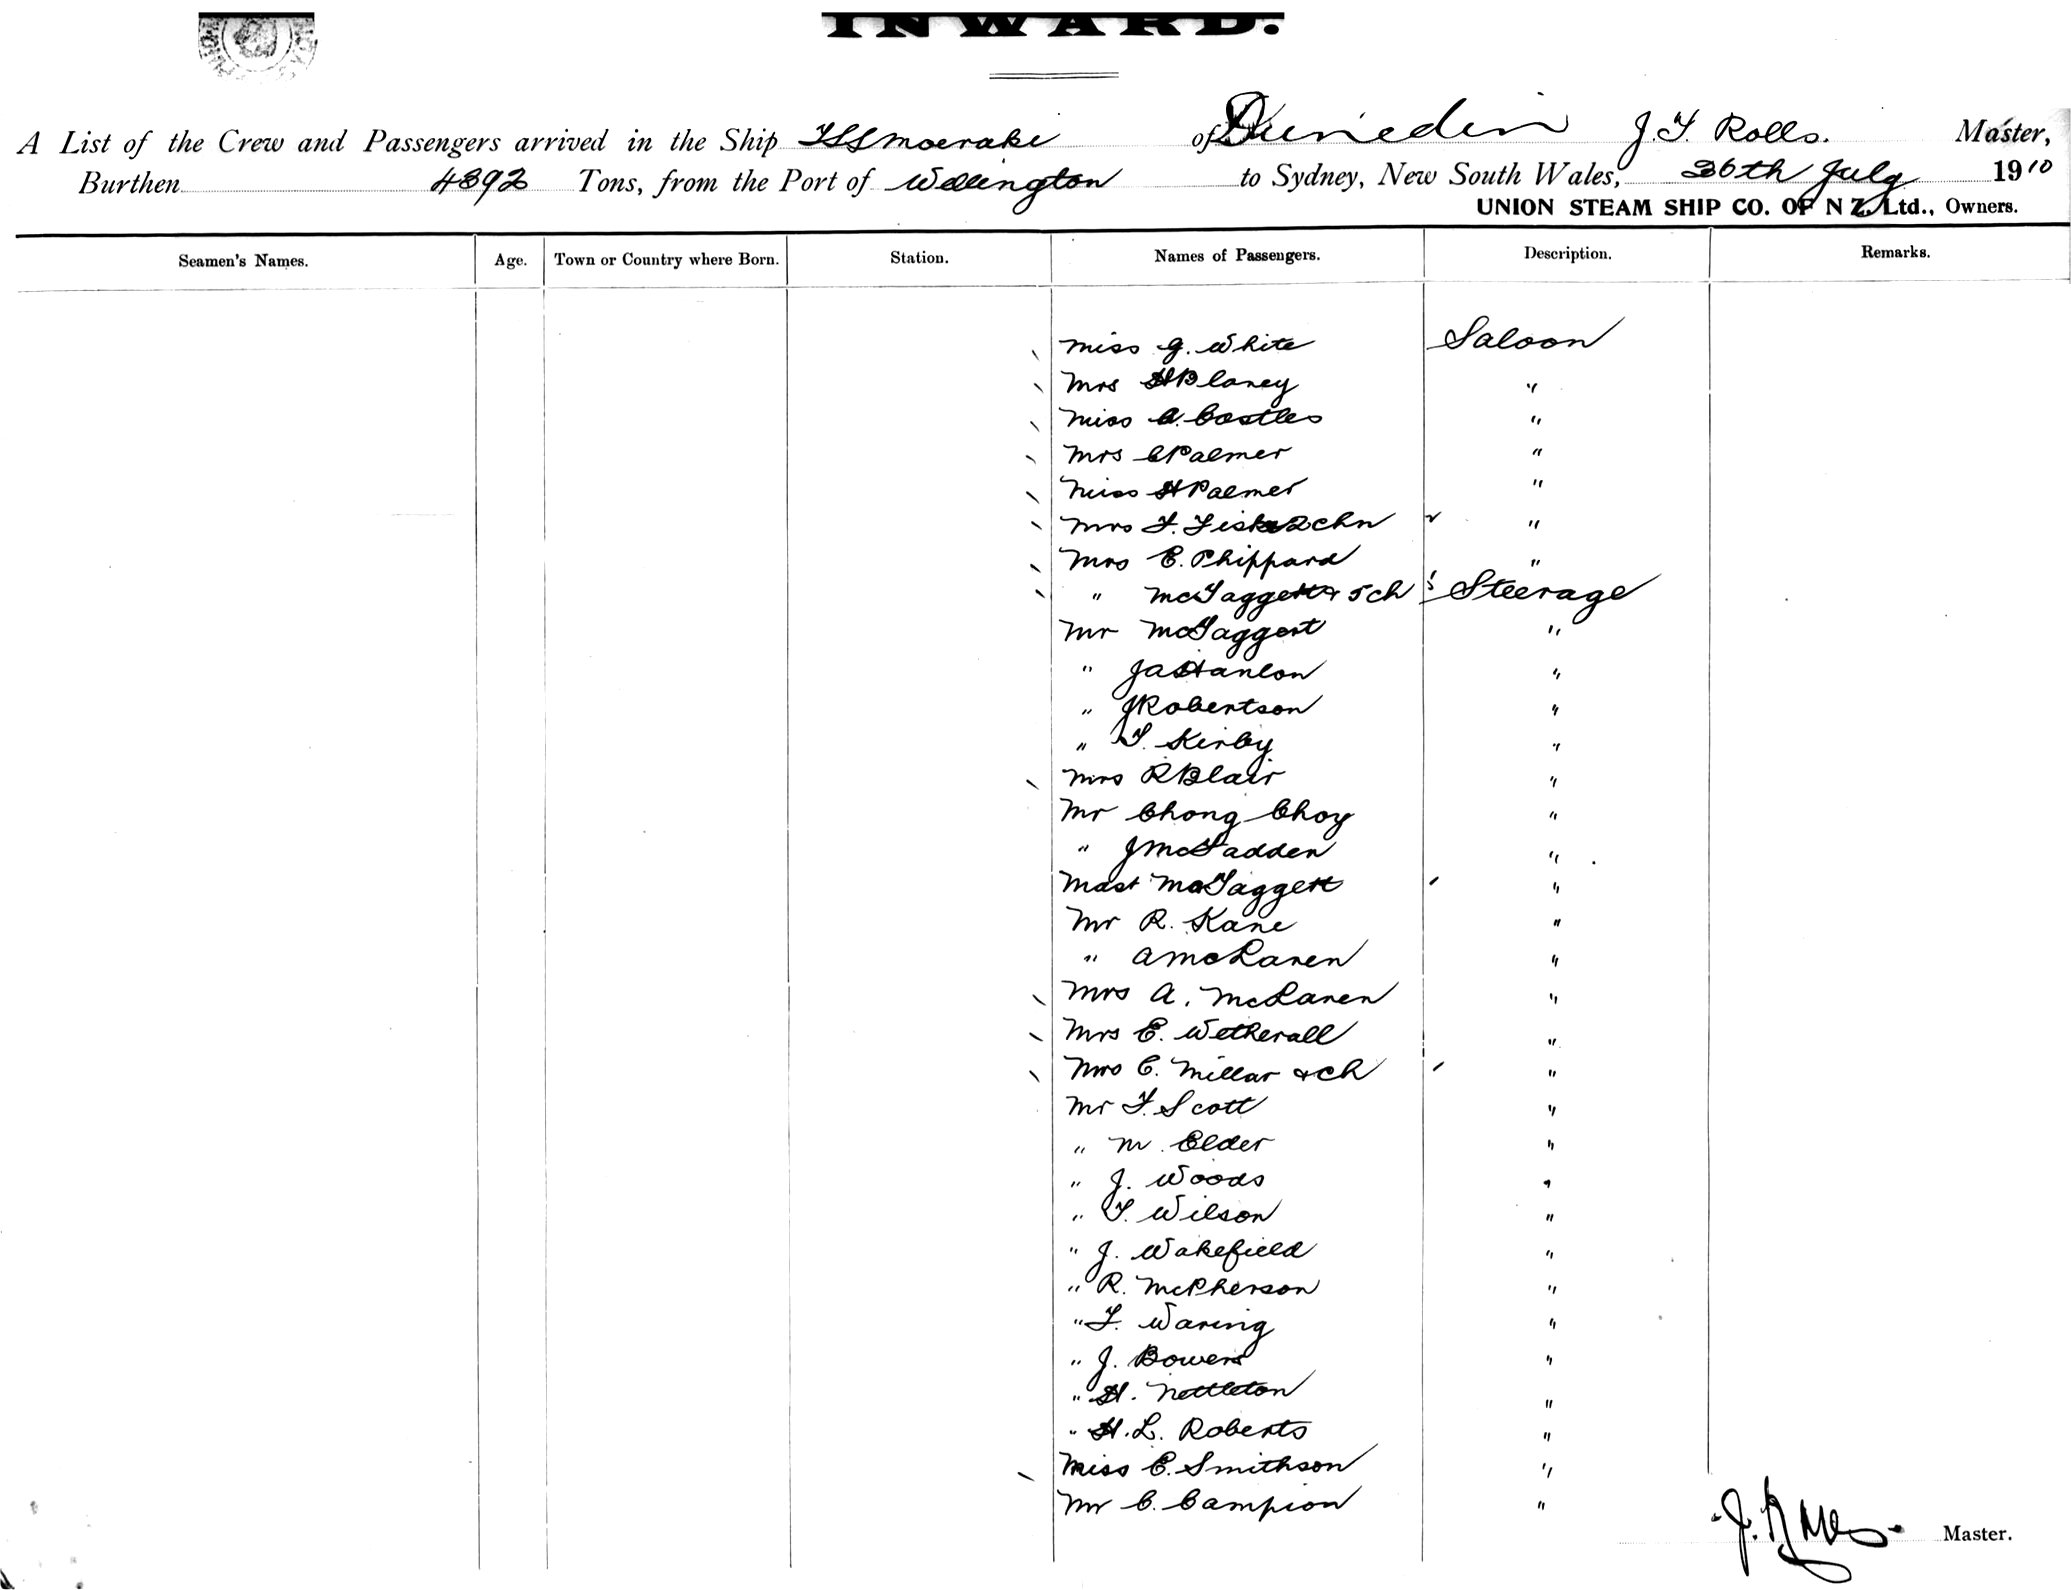 INWARD.
A List of the Crew and Passengers arrived in the Ship TSS Moeraki of Dunedin J. F. Rolls. Master,
Burthen 4392 Tons, from the Port of Wellington to Sydney, New South Wales, 26th July 1910
UNION STEAM SHIP CO. OF N Z. Ltd., Owners.
Seamen's Names. Age. Town or Country where Born. Station. Names of Passengers. Description. Remarks.
Miss G. White Saloon
Mrs H Blaney "
Miss A. Castles "
Mrs C Palmer "
Miss H Palmer "
Mrs F. Fisk 2 chn "
Mrs E. Phippard "
" McTaggert & 5 ch Steerage
Mr McTaggert "
" J A Hanlon "
" J Robertson "
" T. Kirby "
Mrs R Blair "
Mr Chong Choy "
" J McFadden "
Mast McTaggert "
Mr R. Kane "
" A McLaren "
Mrs A. McLaren "
Mrs E. Wetherall "
Mrs C. Millar & ch "
Mr F. Scott "
" M. Elder "
" J. Woods "
" T. Wilson "
" J. Wakefield "
" R. McPherson "
" F. Waring "
" J. Bowers "
" H. Nettleton "
" H. L. Roberts "
Miss E. Smithson "
Mr C. Campion "
Master.